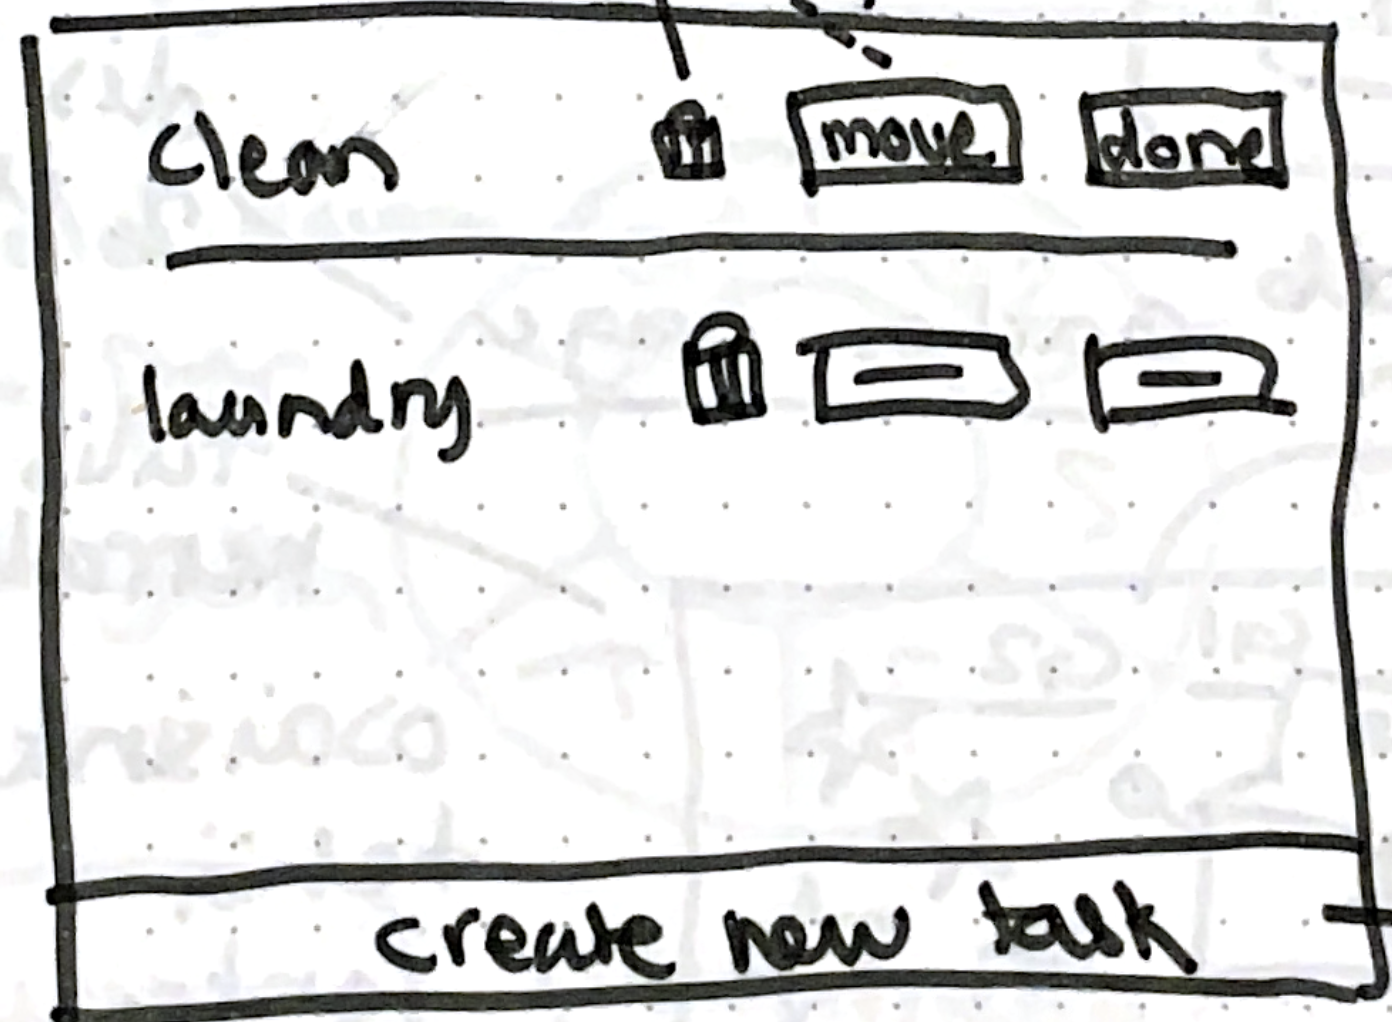 clean move done
laundry
create new task